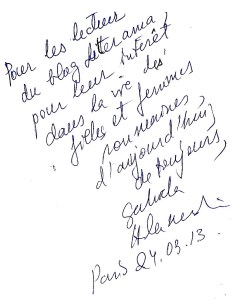 Pour les lecteurs
du blog letterama,
pour leur intérêt
dans la vie des
filles et femmes
roumaines,
d'aujourd'hui,
de toujours,
Paris 24.03.13.